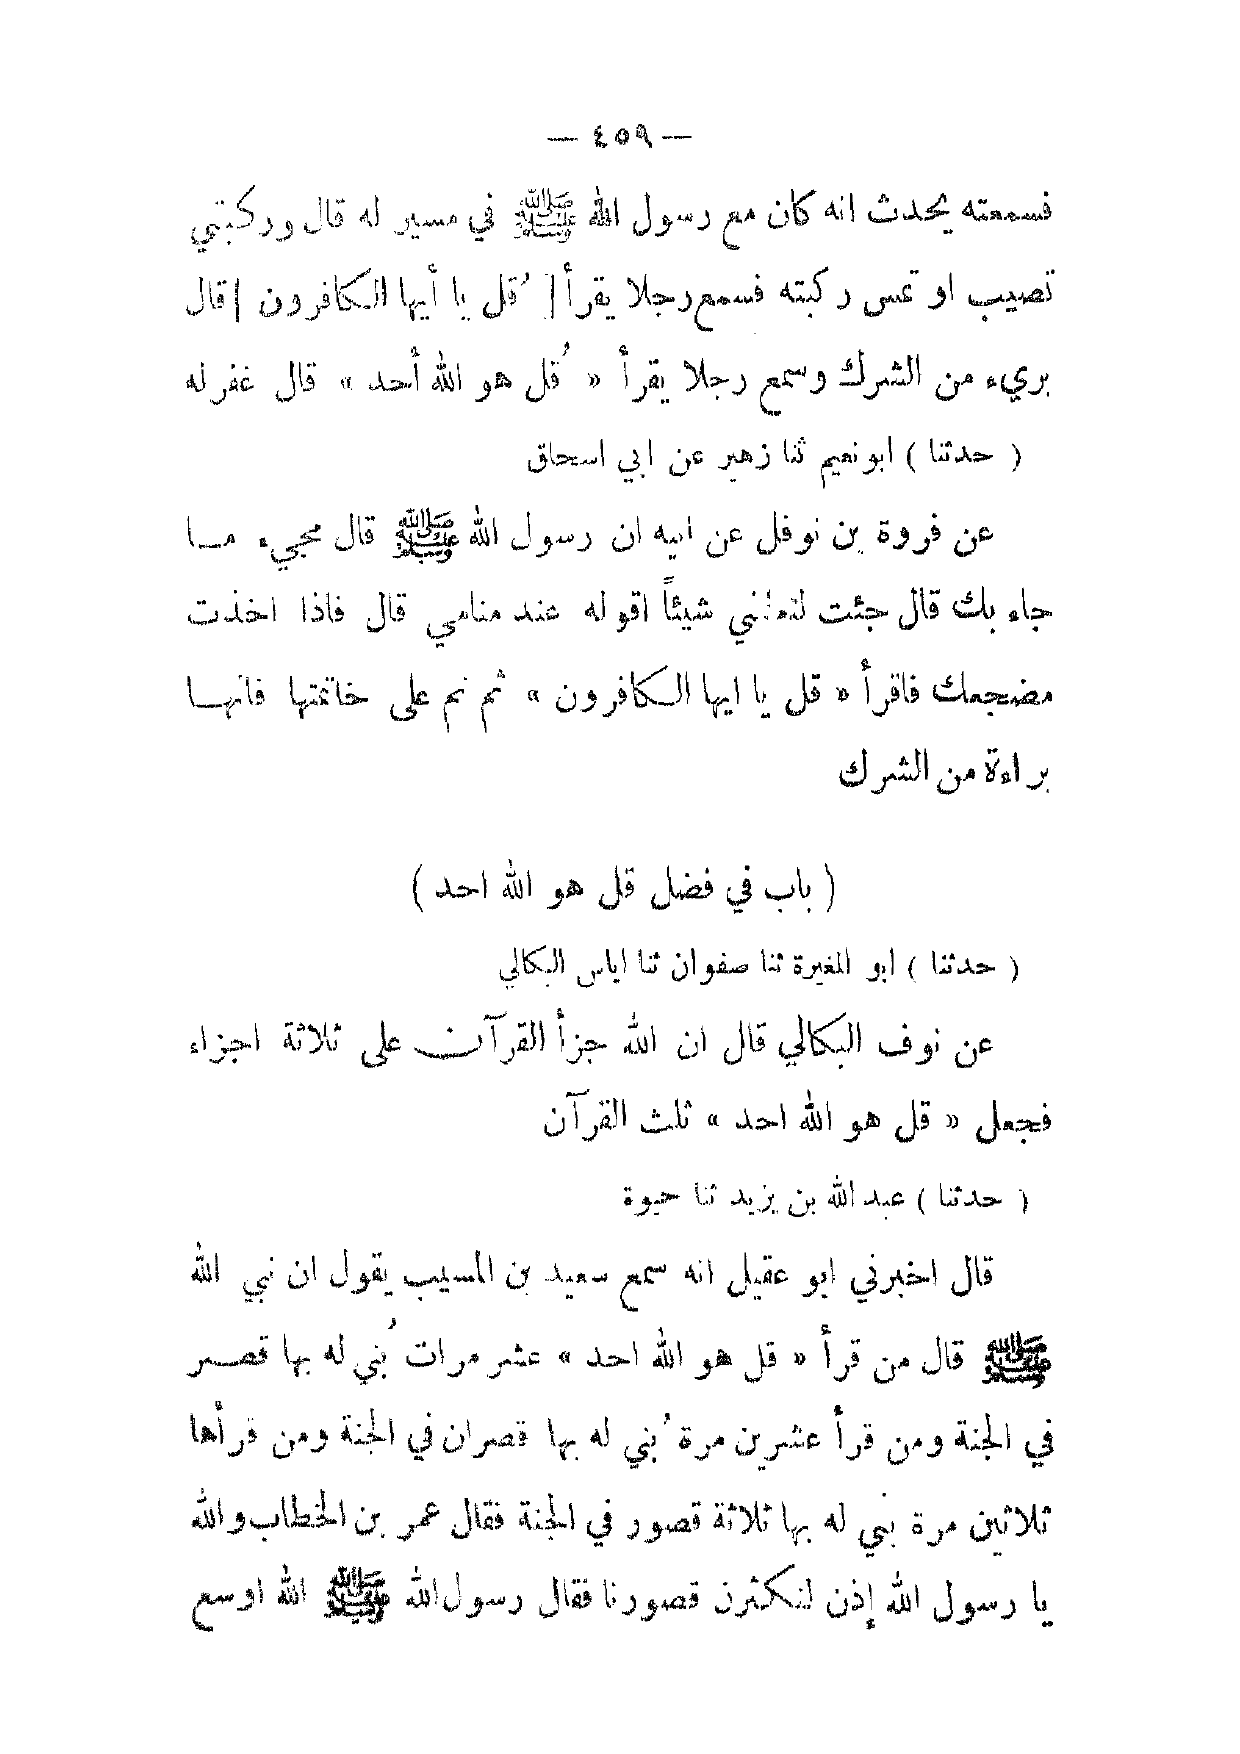 — ٤٥٩ —
فسمعته يحدث انه كان مع رسول الله ﷺ في مسير له قال وركبتي
تصيب او تمس ركبته فسمع رجلا يقرأ [ ُقل يا أيها الكافرون ] قال
بريء من الشرك وسمع رجلا يقرأ « ُقل هو الله أحد » قال غفر له
( حدثنا ) ابو نعيم ثنا زهير عن ابي اسحاق
عن فروة بن نوفل عن ابيه ان رسول الله ﷺ قال مجيء مـا
جاء بك قال جئت لتعلمني شيئاً اقوله عند منامي قال فاذا اخذت
مضجعك فاقرأ « قل يا ايها الكافرون » ثم نم على خاتمتها فانهـا
براءة من الشرك
( باب في فضل قل هو الله احد )
( حدثنا ) ابو المغيرة ثنا صفوان ثنا اياس البكالي
عن نوف البكالي قال ان الله جزأ القرآن على ثلاثة اجزاء
فجعل « قل هو الله احد » ثلث القرآن
( حدثنا ) عبد الله بن يزيد ثنا حيوة
قال اخبرني ابو عقيل انه سمع سعيد بن المسيب يقول ان نبي الله
ﷺ قال من قرأ « قل هو الله احد » عشر مرات ُبني له بها قصـر
في الجنة ومن قرأ عشرين مرة ُبني له بها قصران في الجنة ومن قرأها
ثلاثين مرة بني له بها ثلاثة قصور في الجنة فقال عمر بن الخطاب والله
يا رسول الله إذن لنكثرن قصورنا فقال رسول الله ﷺ الله اوسع